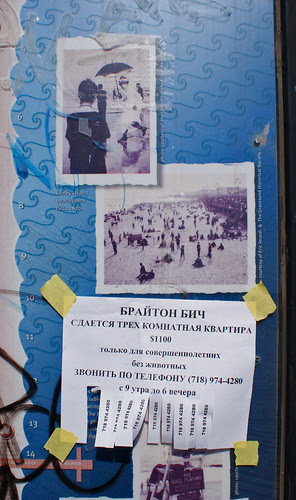 6
8
9
10
11
12
13
14
БРАЙТОН БИЧ
СДАЕТСЯ ТРЕХ КОМНАТНАЯ КВАРТИРА
$1100
только для совершеннолетних
без животных
ЗВОНИТЬ ПО ТЕЛЕФОНУ (718) 974-4280
с 9 утра до 6 вечера
718 974 4280
718 974 4280
718 974 4280
718 974 4280
718 974 4280
718 974 4280
718 974 4280